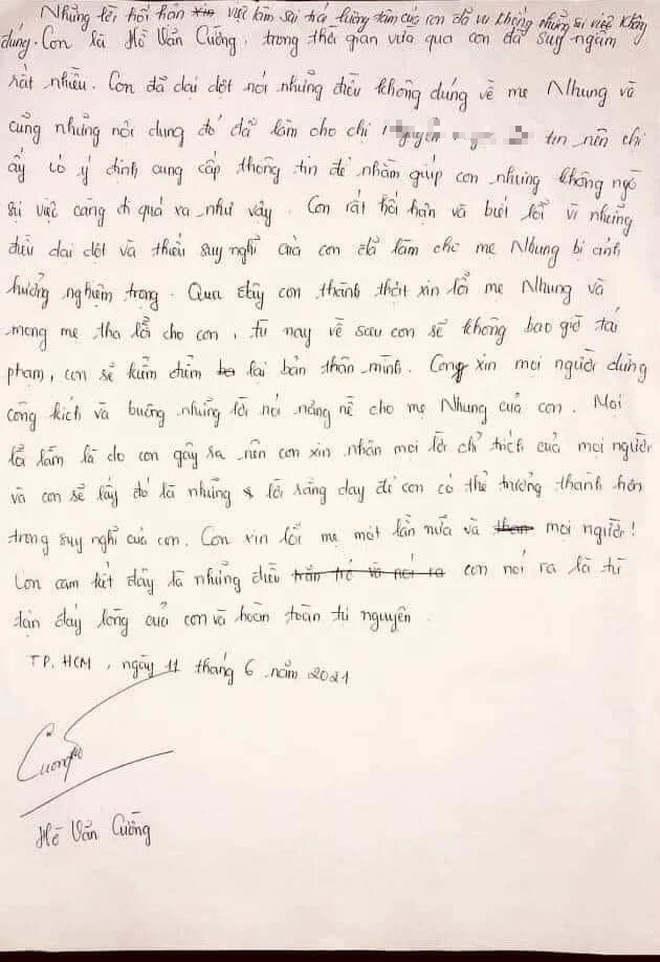 Những lời hối hận xin việc làm sai trái lương tâm của con đã vu khống những sự việc không
đúng. Con là Hồ Văn Cường, trong thời gian vừa qua con đã suy ngẫm
rất nhiều. Con đã dại dột nói những điều không đúng về mẹ Nhung và
cũng những nội dung đó đã làm cho chị tin nên chị
ấy có ý định cung cấp thông tin để nhằm giúp con nhưng không ngờ
sự việc càng đi quá xa như vậy. Con rất hối hận và biết lỗi vì những
điều dại dột và thiếu suy nghĩ của con đã làm cho mẹ Nhung bị ảnh
hưởng nghiêm trọng. Qua đây con thành thật xin lỗi mẹ Nhung và
mong mẹ tha lỗi cho con, từ nay về sau con sẽ không bao giờ tái
phạm, con sẽ kiểm điểm lại bản thân mình. Cong xin mọi người đừng
công kích và buông những lời nói nặng nề cho mẹ Nhung của con. Mọi
lỗi lầm là do con gây ra nên con xin nhận mọi lời chỉ trích của mọi người
và con sẽ lấy đó là những lời răng dạy để con có thể trưởng thành hơn
trong suy nghĩ của con. Con xin lỗi mẹ một lần nữa và mọi người!
Con cam kết đây là những điều trăn trở và nói ra con nói ra là từ
tận đáy lòng của con và hoàn toàn tự nguyện.
TP. HCM, ngày 11 tháng 6 năm 2021
Cường
Hồ Văn Cường